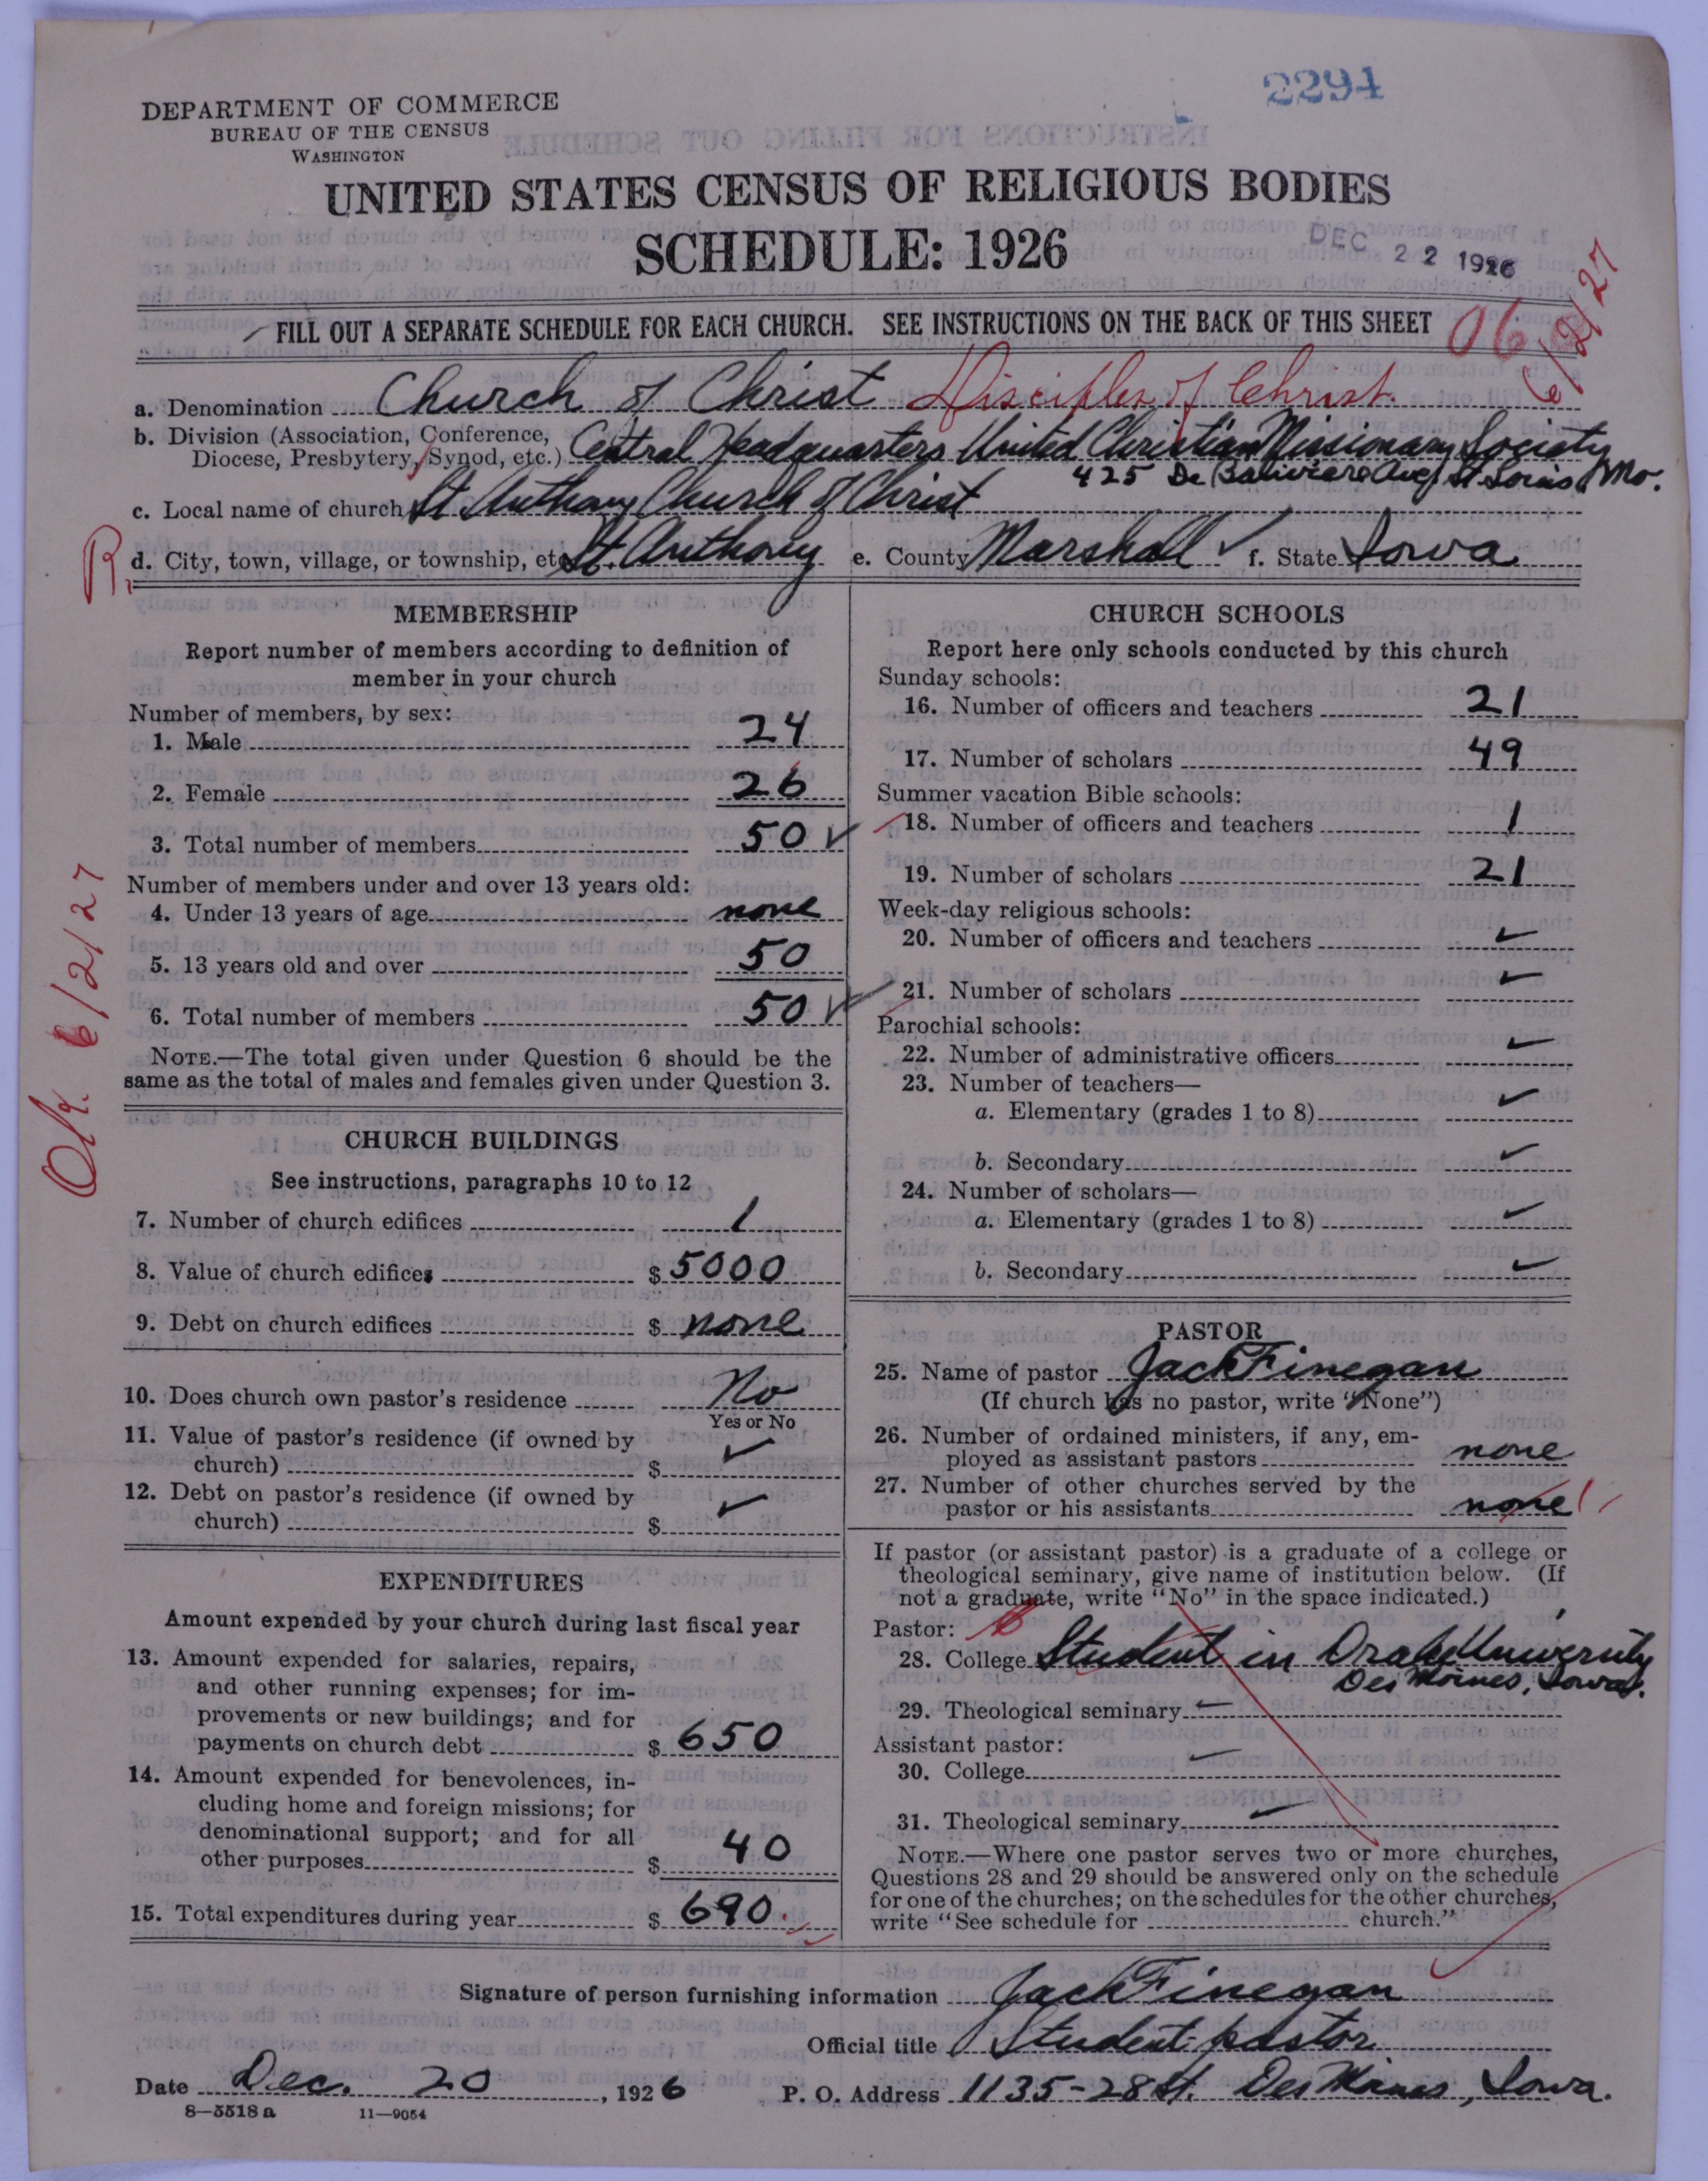 2294
DEPARTMENT OF COMMERCE
BUREAU OF THE CENSUS
WASHINGTON
UNITED STATES CENSUS OF RELIGIOUS BODIES
SCHEDULE: 1926
DEC 22 1926
6/2/27
FILL OUT A SEPARATE SCHEDULE FOR EACH CHURCH. SEE INSTRUCTIONS ON THE BACK OF THIS SHEET
06
a. Denomination Church of Christ Disciples of Christ.
b. Division (Association, Conference, Diocese, Presbytery, Synod, etc.) Central Headquarters United Christian Missionary Society
425 De Baliviere Ave, St Louis, Mo.
c. Local name of church St Anthony Church of Christ
R. d. City, town, village, or township, etc. St. Anthony e. County Marshall ✓ f. State Iowa
Ok. 6/2/27
MEMBERSHIP
Report number of members according to definition of
member in your church
Number of members, by sex:
1. Male 24
2. Female 26
3. Total number of members 50 ✓
Number of members under and over 13 years old:
4. Under 13 years of age none
5. 13 years old and over 50
6. Total number of members 50 ✓
NOTE.—The total given under Question 6 should be the
same as the total of males and females given under Question 3.
CHURCH BUILDINGS
See instructions, paragraphs 10 to 12
7. Number of church edifices 1
8. Value of church edifices $ 5000
9. Debt on church edifices $ none
10. Does church own pastor's residence No
Yes or No
11. Value of pastor's residence (if owned by
church) $ ✓
12. Debt on pastor's residence (if owned by
church) $ ✓
EXPENDITURES
Amount expended by your church during last fiscal year
13. Amount expended for salaries, repairs,
and other running expenses; for im-
provements or new buildings; and for
payments on church debt $ 650
14. Amount expended for benevolences, in-
cluding home and foreign missions; for
denominational support; and for all
other purposes $ 40
15. Total expenditures during year $ 690.
CHURCH SCHOOLS
Report here only schools conducted by this church
Sunday schools:
16. Number of officers and teachers 21
17. Number of scholars 49
Summer vacation Bible schools:
18. Number of officers and teachers 1
19. Number of scholars 21
Week-day religious schools:
20. Number of officers and teachers ✓
21. Number of scholars ✓
Parochial schools:
22. Number of administrative officers ✓
23. Number of teachers—
a. Elementary (grades 1 to 8) ✓
b. Secondary ✓
24. Number of scholars—
a. Elementary (grades 1 to 8) ✓
b. Secondary ✓
PASTOR
25. Name of pastor Jack Finegan
(If church has no pastor, write "None")
26. Number of ordained ministers, if any, em-
ployed as assistant pastors none
27. Number of other churches served by the
pastor or his assistants none
If pastor (or assistant pastor) is a graduate of a college or
theological seminary, give name of institution below. (If
not a graduate, write "No" in the space indicated.)
Pastor:
28. College Student in Drake University
Des Moines, Iowa.
29. Theological seminary ✓
Assistant pastor:
30. College ✓
31. Theological seminary ✓
NOTE.—Where one pastor serves two or more churches,
Questions 28 and 29 should be answered only on the schedule
for one of the churches; on the schedules for the other churches,
write "See schedule for church."
Signature of person furnishing information Jack Finegan
Official title Student pastor
Date Dec. 20, 1926 P. O. Address 1135-28 St. Des Moines, Iowa.
8—5518 a 11—9054